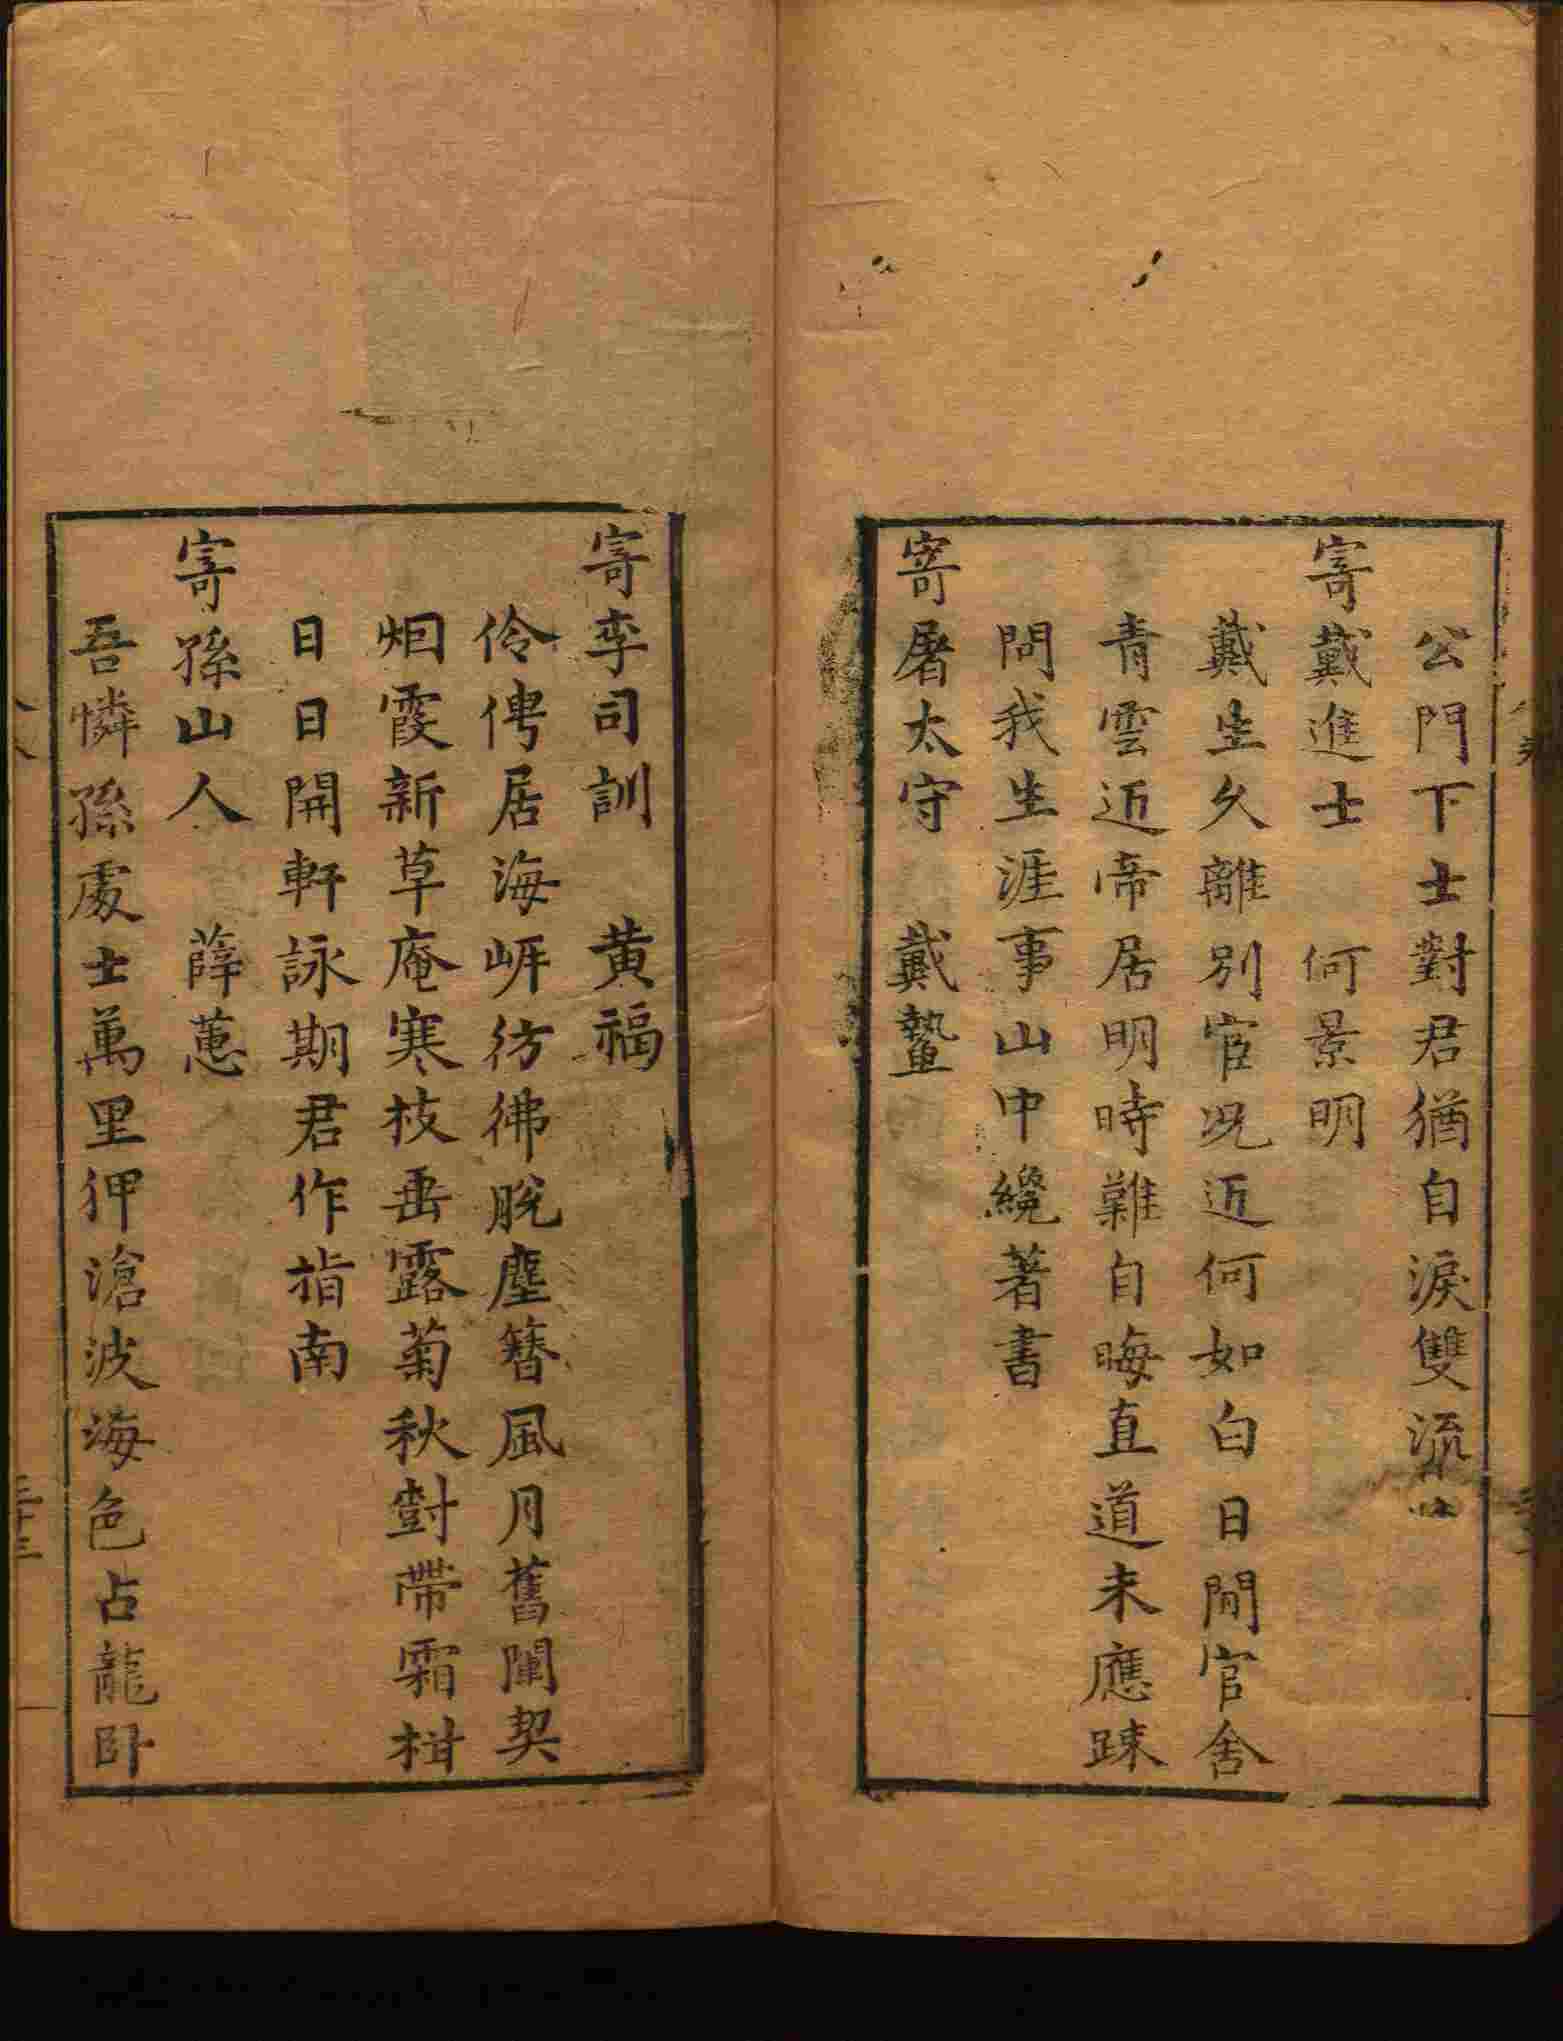 公門下士對君猶自淚雙流
寄戴進士 何景明
戴生久離別官况近何如白日閒官舍
青雲近帝居明時難自晦直道未應踈
問我生涯事山中纔著書
寄屠太守 戴鰲
寄李司訓 黄福
伶俜居海㟁彷彿脫塵簪風月舊闌契
烟霞新草庵寒枝垂露菊秋對帶霜柑
日日開軒詠期君作指南
寄孫山人 薛蕙
吾憐孫處士萬里狎滄波海色占龍卧
三十三